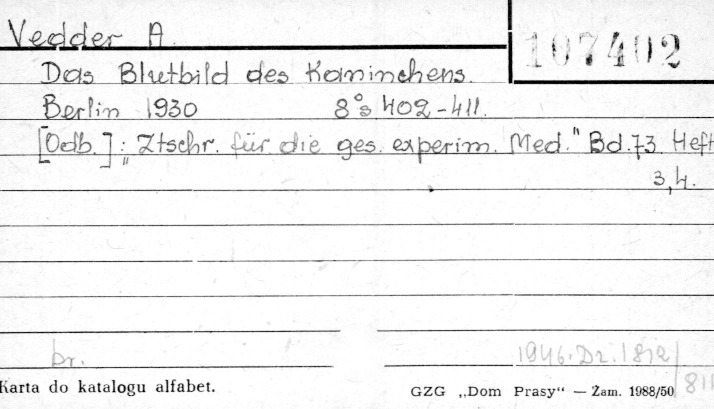 Vedder A.
107402
Das Blutbild des Kaninchens.
Berlin 1930 8° s 402-411.
[Odb.]: „Ztschr. für die ges. experim. Med." Bd.73. Heft
3,4.
br.
1946.Dz.1812/
811
Karta do katalogu alfabet.
GZG „Dom Prasy“ — Zam. 1988/50